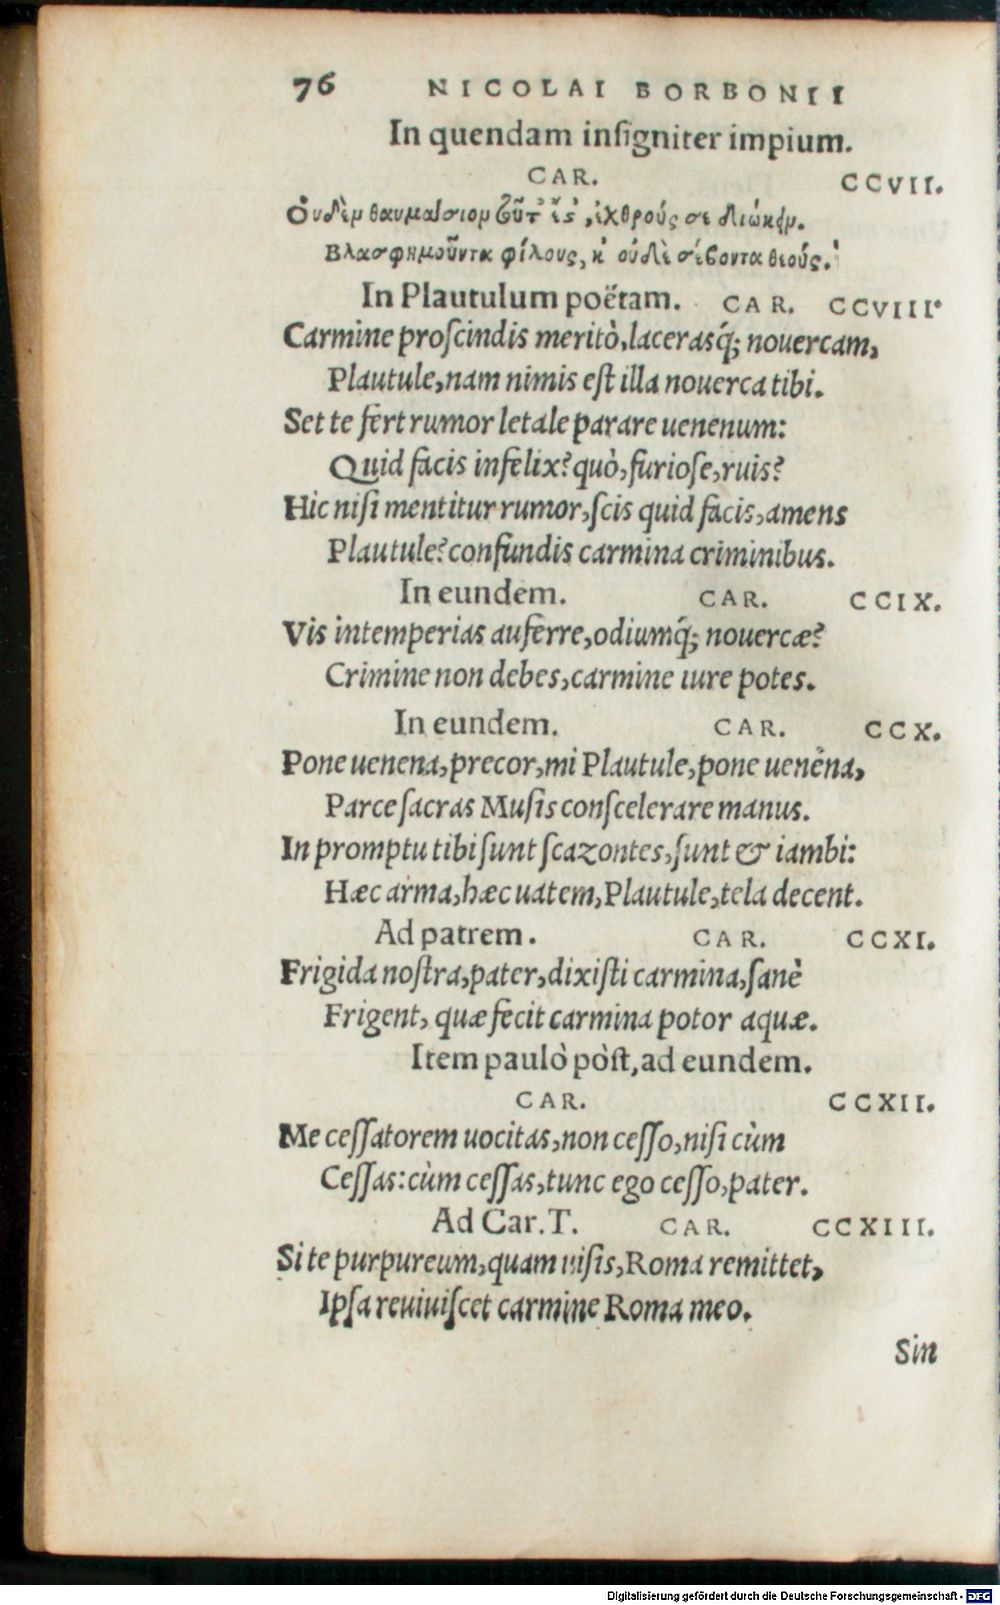 76 NICOLAI BORBONII
In quendam inſigniter impium.
CAR. CCVII.
Οὐδὲν θαυμάσιον τοῦτ' ἐς', ἐχθρούς σε διώκειν.
Βλασφημοῦντα φίλους, κ οὐδὲ σέβοντα θεούς.
In Plautulum poëtam. CAR. CCVIII.
Carmine proſcindis meritò, lacerasq́; nouercam,
Plautule, nam nimis eſt illa nouerca tibi.
Set te fert rumor letale parare uenenum:
Quid facis infelix? quò, furioſe, ruis?
Hic niſi mentitur rumor, ſcis quid facis, amens
Plautule? confundis carmina criminibus.
In eundem. CAR. CCIX.
Vis intemperias auferre, odiumq́; nouercæ?
Crimine non debes, carmine iure potes.
In eundem. CAR. CCX.
Pone uenena, precor, mi Plautule, pone uenēna,
Parce ſacras Muſis conſcelerare manus.
In promptu tibi ſunt ſcazontes, ſunt & iambi:
Hæc arma, hæc uatem, Plautule, tela decent.
Ad patrem. CAR. CCXI.
Frigida noſtra, pater, dixiſti carmina, ſanè
Frigent, quæ fecit carmina potor aquæ.
Item paulò pòſt, ad eundem.
CAR. CCXII.
Me ceſſatorem uocitas, non ceſſo, niſi cùm
Ceſſas: cùm ceſſas, tunc ego ceſſo, pater.
Ad Car. T. CAR. CCXIII.
Si te purpureum, quam uiſis, Roma remittet,
Ipſa reuiuiſcet carmine Roma meo.
Sin
Digitalisierung gefördert durch die Deutsche Forschungsgemeinschaft - DFG